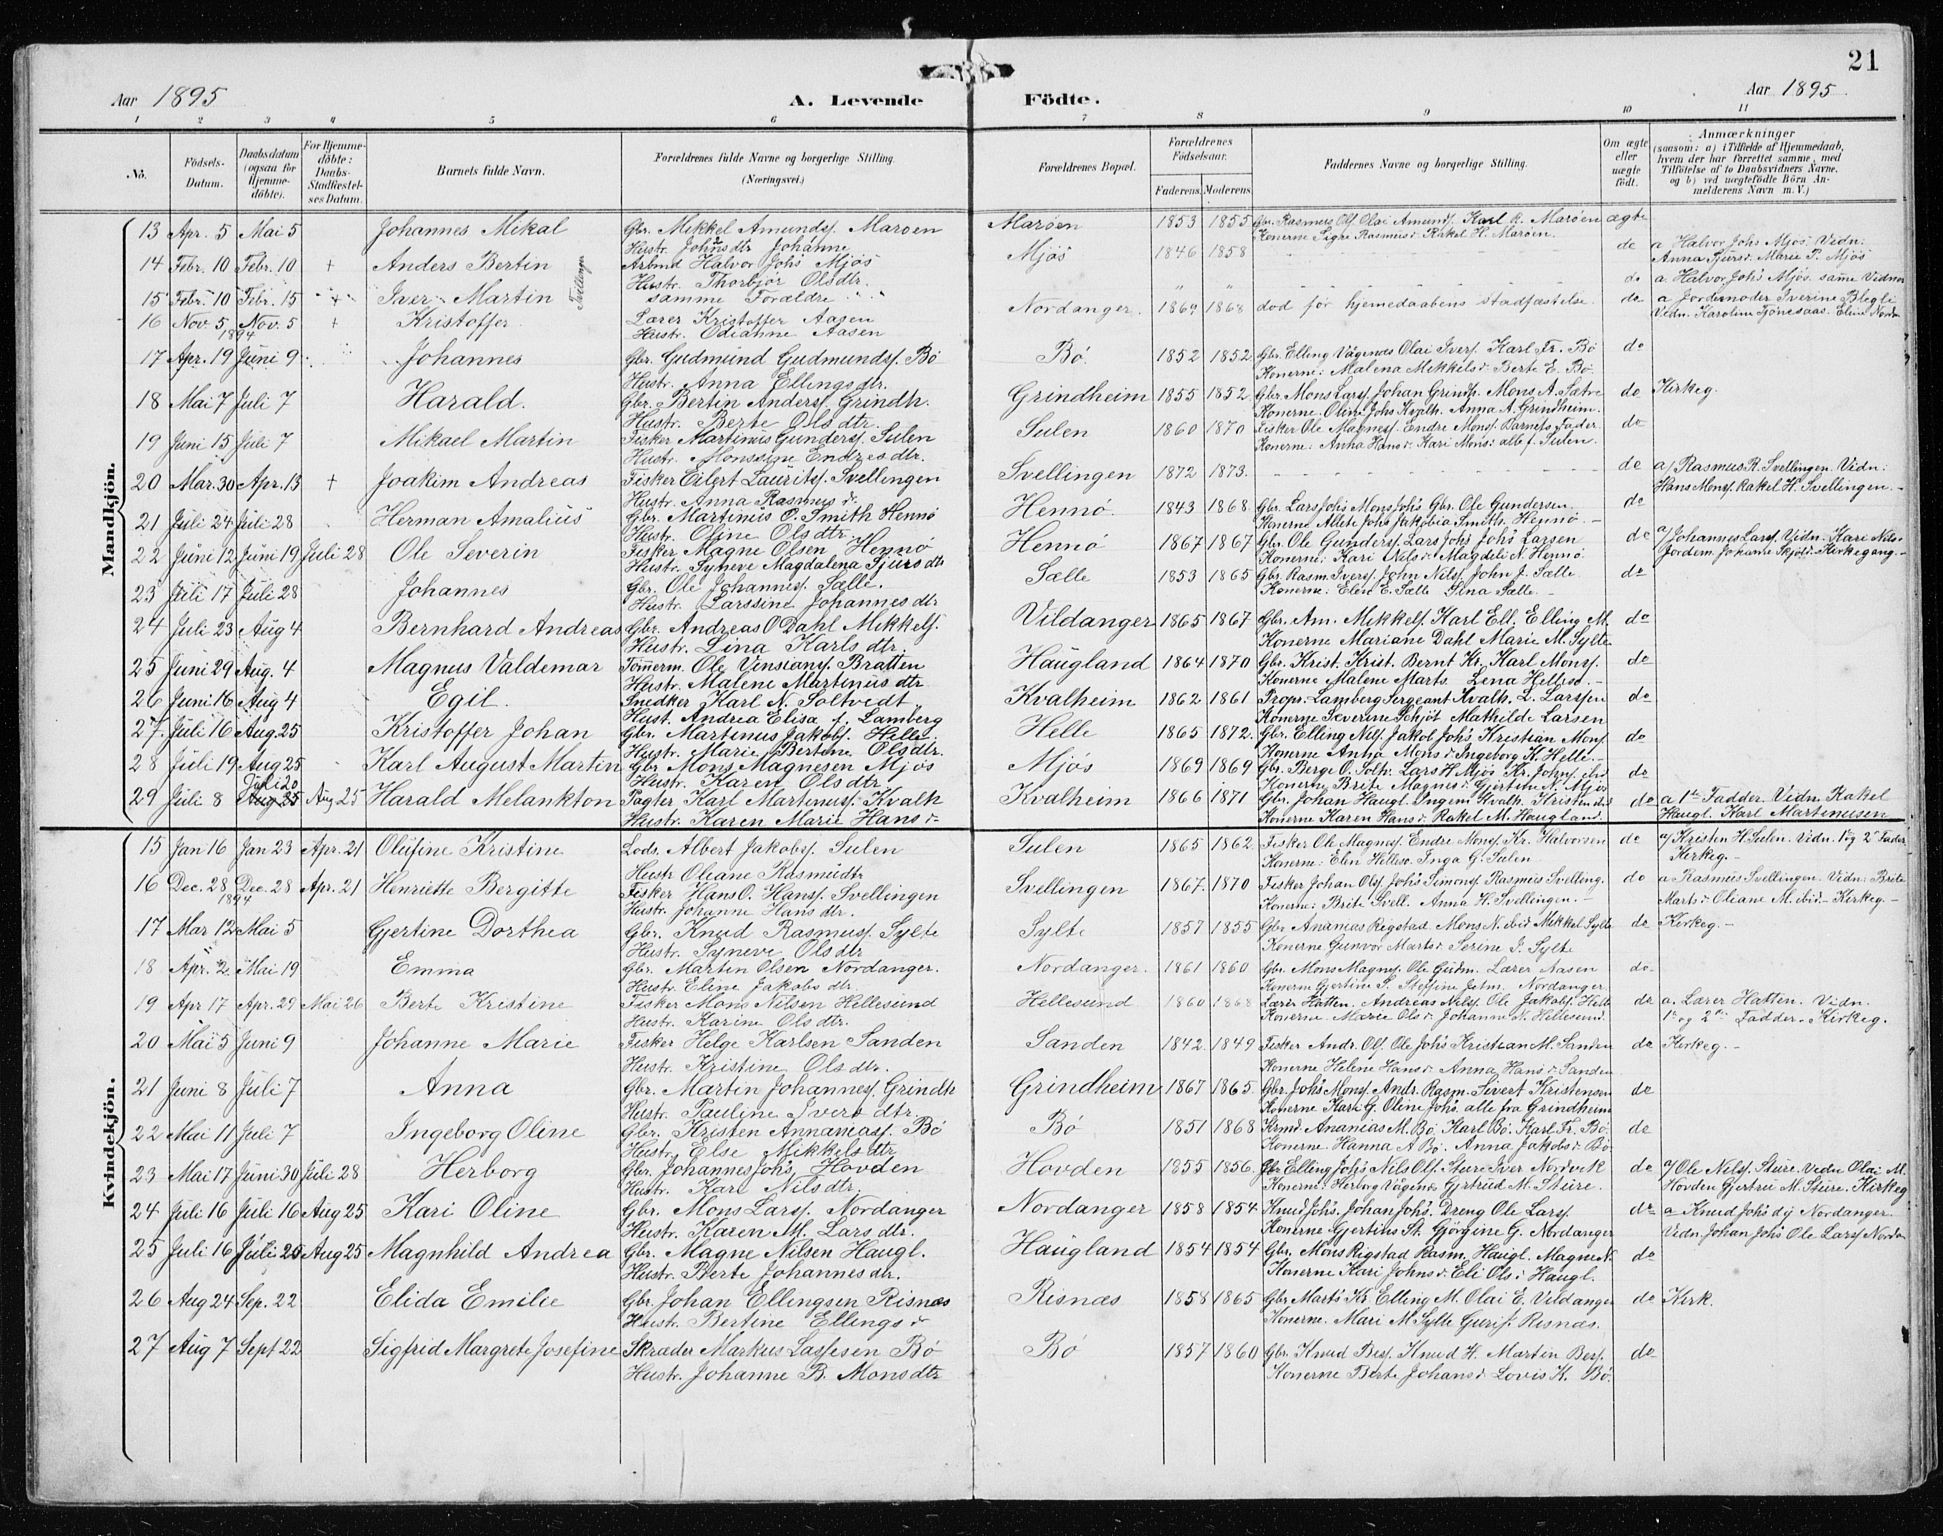 21
Aar 1895 A. Levende Födte. Aar 1895
1 2 3 4 5 6 7 8 9 10 11
No. Födsels-Datum. Daabsdatum (ogsaa for Hjemme-döbte). For Hjemme-döbte: Daabs-Stadfæstel-ses Datum. Barnets fulde Navn. Forældrenes fulde Navne og borgerlige Stilling. (Næringsvei.) Forældrenes Bopæl. Forældrenes Födselsaar. Faderens. Moderens. Faddernes Navne og borgerlige Stilling. Om ægte eller uægte födt. Anmærkninger (saasom: a) i Tilfælde af Hjemmedaab, hvem der har forrettet samme, med Tilföielse af to Daabsvidners Navne, og b) ved uægtefödte Börn An-melderens Navn m. V.)
Mandkjön.
13 Apr. 5 Mai 5 Johannes Mikal Gbr. Mikkel Amunds. Maröen Maröen 1853 1855 Gbr. Rasmus Ols. Olai Amunds. Karl R. Maröen ægte
Hustr. Johs dtr Johanne Konerne Sigre Rasmus d. Rakel H. Maröen.
14 Febr. 10 Febr. 10 + Anders Bertin Tvillinger Arbmd Halvor Johs Mjös Mjös 1846 1858 do a Halvor Johs Mjös. Vidn:
Hustr. Thorbjör Olsdtr. Anna Tjursd. Marie T. Mjös
15 Febr. 10 Febr. 15 + Iver Martin samme Forældre do a Halvor Johs Mjös. samme Vidner
16 Nov. 5 1894 Nov. 5 + Kristoffer Lærer Kristoffer Aasen Nordanger. 1869 1868 död för hjemedaabens stadfæstelse. do a Jordemoder Iverine Blegli
Hustr. Odianne Aasen Vidn. Karoline Tönesaas. Eline Nordan
17 Apr. 19 Juni 9 Johannes Gbr. Gudmund Gudmunds. Bö Bö 1852 1852 Gbr. Elling Vågenes Olai Ivers. Karl Fr. Bö do
Hustr. Anna Ellings dtr. Konerne: Malena Mikkels d. Berte E. Bö
18 Mai 7 Juli 7 Harald. Gbr. Bertin Anders. Grindh. Grindheim 1855 1852 Gbr. Mons Lars. Johan Grindh. Mons A. Sætre do Kirkeg.
Hustr. Berte Ols dtr. Konerne. Oline Johs Kvalh. Anna A. Grindheim.
19 Juni 15 Juli 7 Mikael Martin Fisker Martinus Gunders. Sulen Sulen 1860 1870 Fisker Ole Magnes. Endre Mons. Barnets Fader do
Hustr. Monssine Endres dtr. Konerne: Anna Hans d. Kari Mons: alle f. Sulen.
20 Mar. 30 Apr. 13 + Joakim Andreas Fisker Eilert Laurits. Svellingen Svellingen 1872 1873. do a/ Rasmus R. Svellingen. Vidn:
Hustr. Anna Rasmus d. Hans Mons. Rakel H. Svellingen.
21 Juli 24 Juli 28 Herman Amalius Gbr. Martinus O. Smith Hennö Hennö. 1843 1868 Gbr. Lars Johs Mons Johs Gbr. Ole Gundersen. do
Hustr. Oline Ols dtr. Konerne Allete Johs Jakobia Smith. Hennö.
22 Juni 12 Juni 19 Juli 28 Ole Severin Fisker Magne Olsen Hennö Hennö 1867 1867 Gbr. Ole Gunders. Lars Johs Johs Larsen do a/ Johannes Lars. Vidn. Kari Nils
Hustr. Syneve Magdalena Tjurs dtr Konerne: Kari Nils d. Magdeli N. Hennö Jordem. Johanne Skjöt. Kirkegang.
23 Juli 17 Juli 28 Johannes Gbr. Ole Johannes. Sælle. Sælle 1853 1865 Gbr. Rasm. Ivers. John Nils. John J. Sælle do
Hustr. Larssine Johannes dtr Konerne: Elen E. Sælle Lina Sælle.
24 Juli 23 Aug 4 Bernhard Andreas Gbr. Andreas O Dahl Mikkels. Vildanger 1865 1867 Gbr. Am. Mikkels. Karl Ell. Elling M. do
Hustr. Lina Karls dtr. Konerne Mariane Dahl Marie M. Sylte
25 Juni 29 Aug. 4 Magnus Valdemar Tömerm. Ole Vinsians. Bratten Haugland 1864 1870 Gbr. Krist. Krist. Bernt Kr. Karl Mons. do
Hustr. Malene Martinus dtr Konerne Malene Marts. Lena Helleso.
26 Juni 16 Aug 4 Egil. Snedker Karl N. Soltvedt Kvalheim 1862 1861 Propr. Lamberg Sergeant Kvalh. L. Larssen do
Hust. Andrea Elisa f. Lamberg Konerne Severine Schjöt Mathilde Larsen
27. Juli 16 Aug. 25 Kristoffer Johan Gbr. Martinus Jakobs. Helle. Helle 1865 1872. Gbr. Elling Nils. Jakob Johs Kristian Mons. do
Hustr. Marie Bertine Ols dtr. Konerne Anna Mons d. Ingeborg K. Helle.
28 Juli 19 Aug 25 Karl August Martin Gbr. Mons Magnesen Mjös Mjös 1869 1869 Gbr. Berge O. Soltv. Lars H. Mjös Kr. Johns. do
Hustr. Karen Ols dtr. Konerne Brite Magnes d. Gjertine N. Mjös
29 Juli 8 Juli 20 Aug 25 Harald Melankton Pagter Karl Martinus. Kvalh Kvalheim 1866 1871 Gbr. Johan Haugl. Ingem. Kvalh. Kristen do a 1ste Fadder. Vidn. Rakel
Hustr. Karen Marie Hans d. Konerne Karen Hans d. Rakel M. Haugland Haugl. Karl Martinusen
Kvindekjön.
15 Jan 16 Jan 23 Apr. 21 Olufine Kristine Lods. Albert Jakobs. Sulen Sulen 1865 1862 Fisker Ole Magnes. Endre Mons. Kr. Halvorsen do a/ Kristen H. Sulen. Vidn. 1e og 2e Fader
Hustr Oliane Rasmusdtr Konerne: Elen Helleso. Inga G. Sulen Kirkeg.
16 Dec. 28 1894 Dec. 28 Apr. 21 Henriette Bergitte Fisker Hans O. Hans. Svellingen Svellingen 1867. 1870 Fisker Johan Ols. Johs Simons. Rasmus Svelling. do a Rasmus Svellingen. Vidn: Brite
Hustr. Johanne Hans dtr. Konerne: Brite Svell. Anna H. Svellingen. Marts d. Oliane M. ibid. Kirkeg.
17 Mar 12 Mai 5 Gjertine Dorthea Gbr. Knud Rasmus. Sylte Sylte 1857 1855 Gbr Ananias Rigstad. Mons N. ibid Mikkel Sylte do Kirkeg.
Hustr. Syneve Ols dtr Konerne Gunvor Marts d. Serine J. Sylte
18 Apr. 2. Mai 19 Emma Gbr. Martin Olsen Nordanger. Nordanger. 1861 1860 Gbr. Mons Magnes. Ole Gudm. Lærer Aasen do
Hustr. Eline Jakobs dtr. Konerne Gjertine S. Steffine John. Nordanger
19 Apr. 17 Apr. 29 Mai 26 Berte Kristine Fisker Mons Nilsen Hellesund Hellesund 1860 1868 Lærer Hatten. Andreas Nils. Ole Jakobs. Helle do a. Lærer Hatten. Vidn.
Hustr. Karine Ols dtr. Konerne. Marie Ols d. Johanne N. Hellesund. 1e og 2en Fadder. Kirkeg.
20 Mai 5 Juni 9 Johanne Marie Fisker Helge Karlsen Sanden Sanden 1842. 1849 Fisker Andr. Ols. Ole Johs Kristian M. Sanden do Kirkeg.
Hustr. Kristine Ols dtr. Konerne Helene Hans d. Anna Hans d. Sanden
21 Juni 8 Juli 7 Anna Gbr. Martin Johannes. Grindh Grindheim 1867 1865 Gbr. Johs Mons. Andr. Rasm. Sivert Kristensen do
Hustr. Pauline Ivers dtr. Konerne Kari G. Oline Johs. alle fra Grindheim
22 Mai 11 Juli 7 Ingeborg Oline Gbr. Kristen Annanias. Bö Bö 1851 1868 Krmd. Ananias M. Bö. Karl Bö. Karl Fr. Bö. do
Hustr. Else Mikkels dtr Konerne. Hanna A Bö. Anna Jakobs d. Bö.
23 Mai 17 Juni 30 Juli 28 Herborg Gbr. Johannes Johs. Hovden Hovden 1855 1856. Gbr Elling Johs Nils Ols. Sture Iver Nordvik do a/ Ole Nils. Sture. Vidn Olai M.
Hustr. Kari Nils dtr. Konerne: Herborg Vågenes Gjertrud M. Sture. Hovden Gjertru M. Sture. Kirkeg
24 Juli 16 Juli 16 Aug 25 Kari Oline Gbr. Mons Lars. Nordanger Nordanger 1858 1854 Knud Johs. Johan Johs. Dreng Ole Lars. do a Knud Johs dy Nordanger
Hustr. Karen M. Lars dtr. Konerne Gjertine St. Gjörgine G. Nordanger Vidn. Johan Johs Ole Lars Norda
25 Juli 16 Juli 25 Aug 25 Magnhild Andrea Gbr. Magne Nilsen Haugl. Haugland 1854 1854 Gbr. Mons Rigstad Rasm. Haugl. Magne N. do
Hustr. Berte Johannes dtr. Konerne Kari Johns d. Eli Ols d. Haugl.
26 Aug 24 Sep. 22 Elida Emilie Gbr. Johan Ellingsen Risnæs Risnæs 1858 1865 Gbr Marts Kr. Elling M. Olai E. Vildanger do Kirk.
Hustr. Bertine Ellings d Konerne. Mari M Sylte Guri J. Risnæs.
27 Aug 7 Sept 22 Sigfrid Margrete Josefine Skræder Markus Lassesen Bö Bö 1857 1860 Gbr. Knud Bers. Knud H. Martin Bers. do
Hustr. Johanne B. Mons dtr Konerne Berte Johans d. Lovis K. Bö.